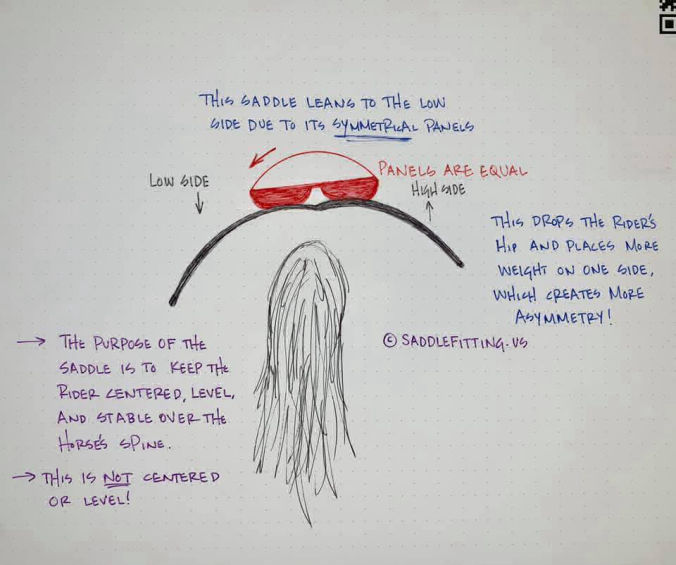 THIS SADDLE LEANS TO THE LOW
SIDE DUE TO ITS SYMMETRICAL PANELS
PANELS ARE EQUAL
LOW SIDE
HIGH SIDE
THIS DROPS THE RIDER'S
HIP AND PLACES MORE
WEIGHT ON ONE SIDE,
WHICH CREATES MORE
ASYMMETRY!
© SADDLEFITTING.US
→ THE PURPOSE OF THE
SADDLE IS TO KEEP THE
RIDER CENTERED, LEVEL,
AND STABLE OVER THE
HORSE'S SPINE.
→ THIS IS NOT CENTERED
OR LEVEL!